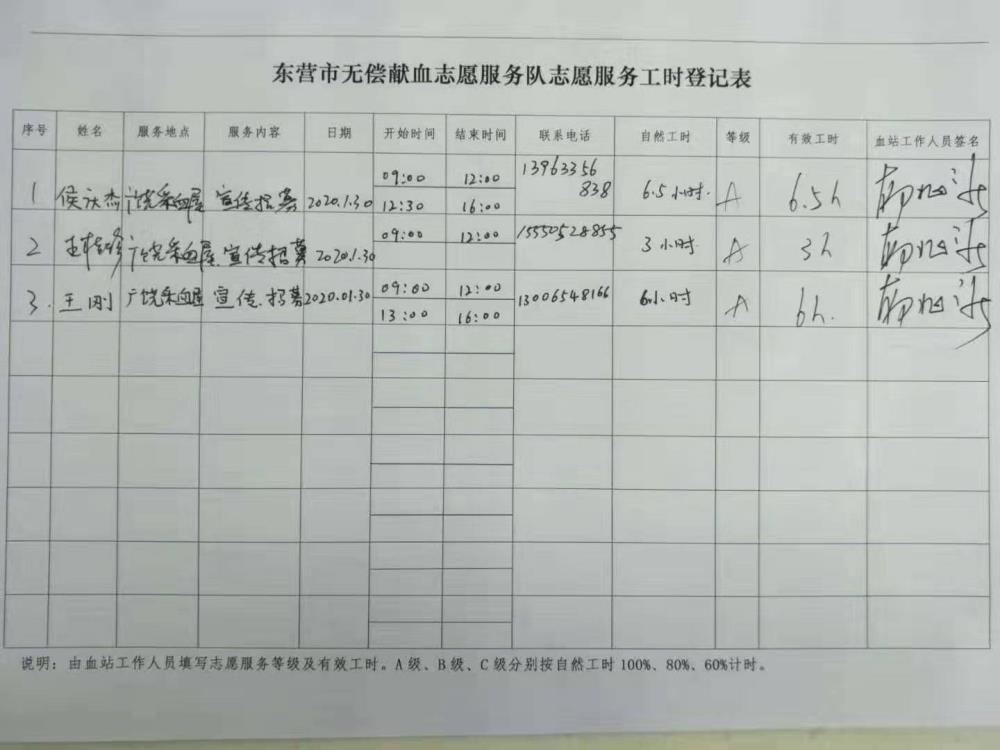 东营市无偿献血志愿服务队志愿服务工时登记表
序号 姓名 服务地点 服务内容 日期 开始时间 结束时间 联系电话 自然工时 等级 有效工时 血站工作人员签名
1 侯庆杰 广饶采血屋 宣传招募 2020.1.30 09:00 12:00 13963356838 6.5小时. A 6.5h
12:30 16:00
2 广饶采血屋 宣传招募 2020.1.30 09:00 12:00 15550528855 3小时 A 3h
3. 王刚 广饶采血屋 宣传.招募 2020.01.30 09:00 12:00 13006548166 6小时 A 6h.
13:00 16:00
说明：由血站工作人员填写志愿服务等级及有效工时。A级、B级、C级分别按自然工时100%、80%、60%计时。